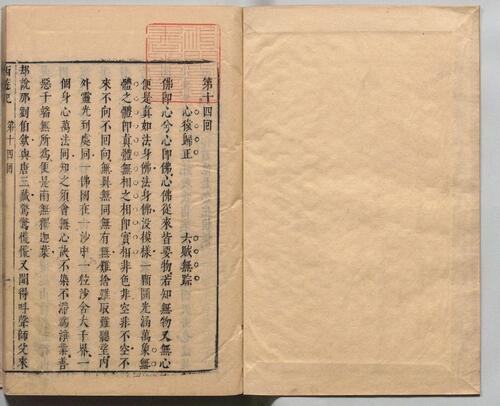 第十四回
心猿歸正 六賊無踪
佛即心兮心即佛心佛從來皆要物若知無物又無心
便是真如法身佛法身佛沒模樣一顆圓光涵萬象無
體之體即真體無相之相即實相非色非空非不空不
來不向不回向無異無同無有無難捨難取難聽望內
外靈光到處同一佛國在一沙中一粒沙含大千界一
個身心萬法同知之須會無心訣不染不滯爲淨業善
惡千端無所爲便是南無釋迦葉
却說那劉伯欽與唐三藏驚驚慌慌又聞得叫聲師父來
西遊記 第十四回